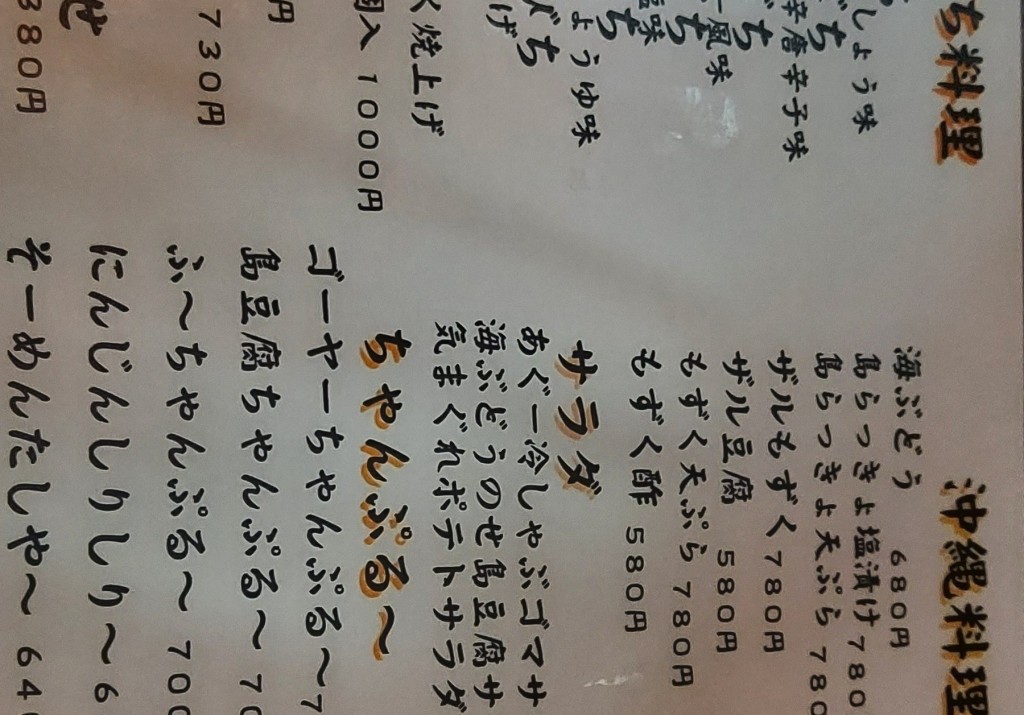 ち料理
しょう味
唐辛子味
風味
ょうゆ味
げ
く焼上げ
入 1000円
円
730円
せ
380円
沖縄料理
海ぶどう 680円
島らっきょ塩漬け 780
島らっきょ天ぷら 780
ザルもずく 780円
ザル豆腐 580円
もずく天ぷら 780円
もずく酢 580円
サラダ
あぐー冷しゃぶゴマサ
海ぶどうのせ島豆腐サ
気まぐれポテトサラダ
ちゃんぷる〜
ゴーヤーちゃんぷる〜 7
島豆腐ちゃんぷる〜 70
ふ〜ちゃんぷる〜 700
にんじんしりしり〜 6
そーめんたしや〜 640